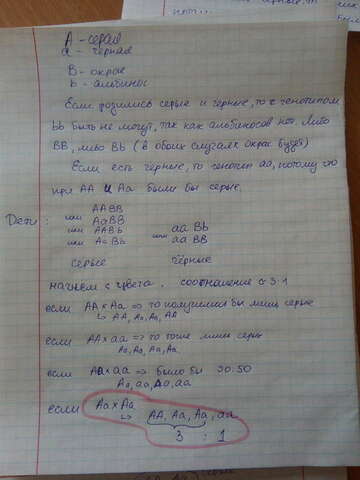 A - серая
a - чёрная
B - окрас
b - альбинос
Если родились серые и чёрные, то с генотипом
bb быть не могут, так как альбиносов нет. Либо
BB, либо Bb (в обоих случаях окрас будет)
Если есть чёрные, то генотип aa, потому что
при AA и Aa были бы серые.
Дети:
AABB
или AaBB
или AABb
или AaBb
aa Bb
или aa BB
серые чёрные
начнём с цвета. соотношение 3:1
если AA × Aa => то получились бы лишь серые
↳ AA, Aa, Aa, AA
если AA × aa => то тоже лишь серые
Aa, Aa, Aa, Aa
если Aa × aa => было бы 50:50
Aa, aa, Aa, aa
если Aa × Aa
↳ AA, Aa, Aa, aa
3 : 1